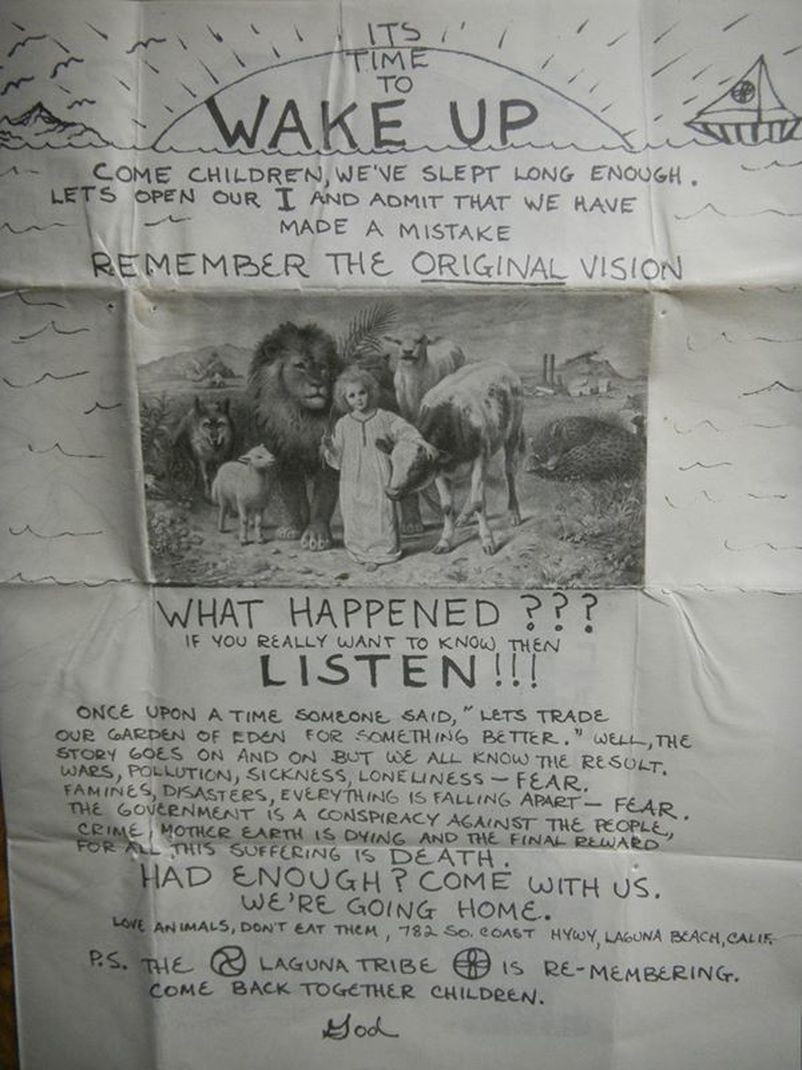 ITS
TIME
TO
WAKE UP
COME CHILDREN, WE'VE SLEPT LONG ENOUGH.
LETS OPEN OUR I AND ADMIT THAT WE HAVE
MADE A MISTAKE
REMEMBER THE ORIGINAL VISION
WHAT HAPPENED ???
IF YOU REALLY WANT TO KNOW THEN
LISTEN!!!
ONCE UPON A TIME SOMEONE SAID, "LETS TRADE
OUR GARDEN OF EDEN FOR SOMETHING BETTER." WELL, THE
STORY GOES ON AND ON BUT WE ALL KNOW THE RESULT.
WARS, POLLUTION, SICKNESS, LONELINESS — FEAR.
FAMINES, DISASTERS, EVERYTHING IS FALLING APART — FEAR.
THE GOVERNMENT IS A CONSPIRACY AGAINST THE PEOPLE,
CRIME, MOTHER EARTH IS DYING AND THE FINAL REWARD
FOR ALL THIS SUFFERING IS DEATH.
HAD ENOUGH? COME WITH US.
WE'RE GOING HOME.
LOVE ANIMALS, DON'T EAT THEM, 782 SO. COAST HYWY, LAGUNA BEACH, CALIF.
P.S. THE LAGUNA TRIBE IS RE-MEMBERING.
COME BACK TOGETHER CHILDREN.
God